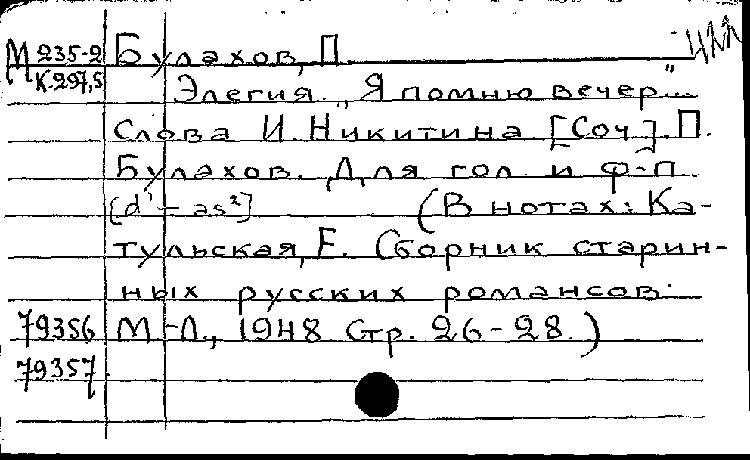 М 235-2 Булахов, П.
К-297,5 Элегия. „Я помню вечер..."
Слова И. Никитина [Соч]. П.
Булахов. Для гол и ф-п
[d¹ - as²] (В нотах: Ка-
тульская, Е. Сборник старин-
ных русских романсов.
79356 М-Л., 1948 Стр. 26-28.)
79357